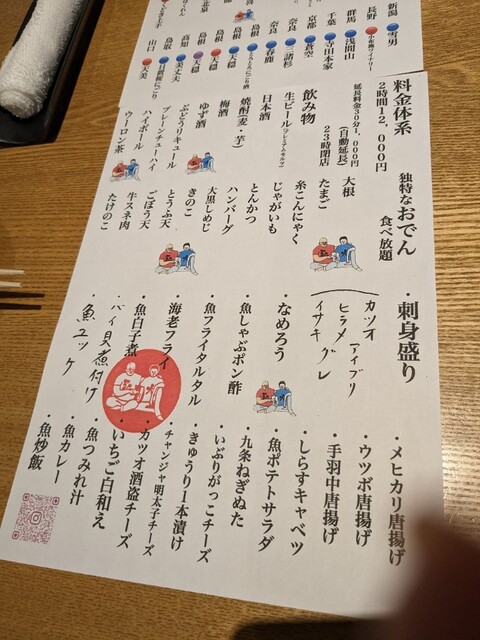 新潟 雪男
長野 小布施ワイナリー
群馬 浅間山
千葉 寺田本家
京都 蒼空
奈良 二諸杉
奈良 春鹿
島根 天穏
島根 天穏
島根 天穏
高知 美丈夫
鳥取
山口 天美
料金体系
2時間12,000円
延長料金30分1,000円
(自動延長)
23時閉店
飲み物
生ビール(プレミアムモルツ)
日本酒
焼酎(麦・芋)
梅酒
ゆず酒
ぶどうリキュール
プレーンチューハイ
ハイボール
ウーロン茶
独特なおでん
食べ放題
大根
たまご
糸こんにゃく
じゃがいも
とんかつ
ハンバーグ
大黒しめじ
きのこ
とうふ天
ごぼう天
牛スネ肉
たけのこ
・刺身盛り
カツオ
ヒラメ アイブリ
イサキ グレ
・なめろう
・魚しゃぶポン酢
・魚フライタルタル
・海老フライ
・魚白子煮
・バイ貝煮付け
・魚ユッケ
・メヒカリ唐揚げ
・ウツボ唐揚げ
・手羽中唐揚げ
・しらすキャベツ
・魚ポテトサラダ
・九条ねぎぬた
・いぶりがっこチーズ
・きゅうり1本漬け
・チャンジャ明太子チーズ
・カツオ酒盗チーズ
・いちご白和え
・魚つみれ汁
・魚カレー
・魚炒飯